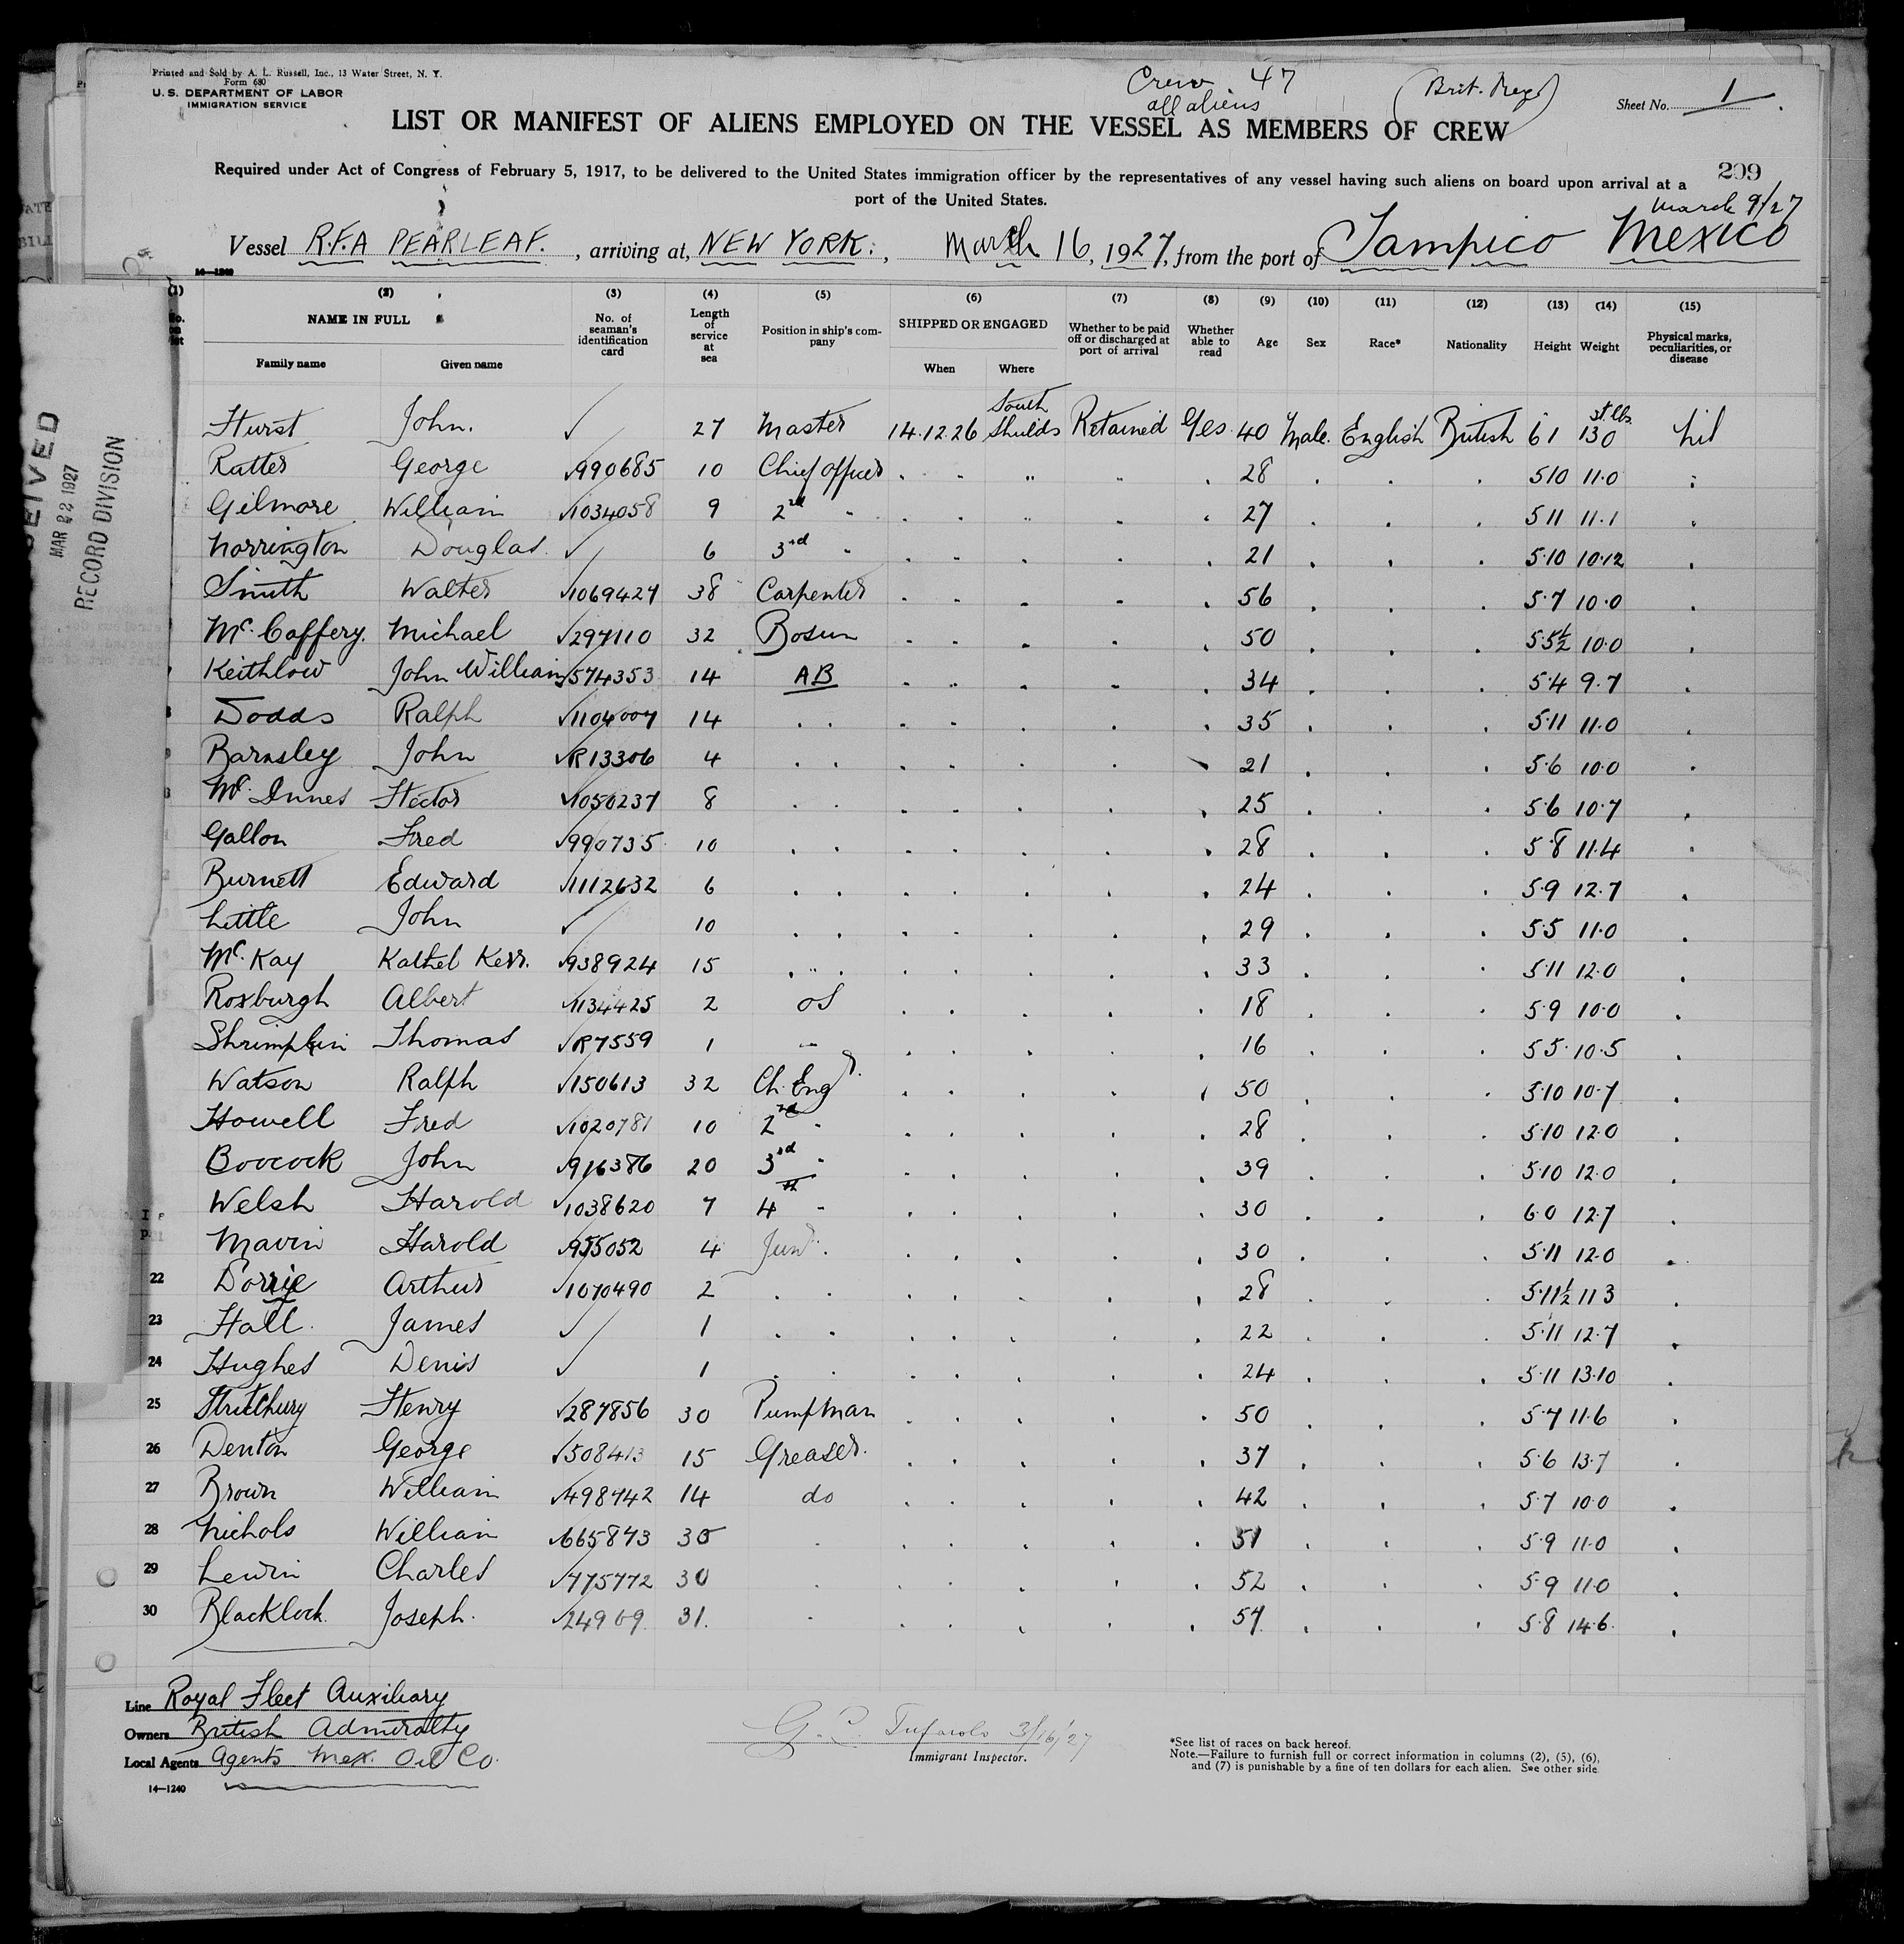 Printed and Sold by A. L. Russell, Inc., 13 Water Street, N. Y.
Form 680
U. S. DEPARTMENT OF LABOR
IMMIGRATION SERVICE
Crew 47
all aliens
Sheet No. 1
LIST OR MANIFEST OF ALIENS EMPLOYED ON THE VESSEL AS MEMBERS OF CREW
Required under Act of Congress of February 5, 1917, to be delivered to the United States immigration officer by the representatives of any vessel having such aliens on board upon arrival at a
port of the United States.
209
March 9/27
Vessel R.F.A PEARLEAF. , arriving at, NEW YORK. , March 16, 1927, from the port of Tampico Mexico
14—1240
(1) (2) (3) (4) (5) (6) (7) (8) (9) (10) (11) (12) (13) (14) (15)
NAME IN FULL Family name Given name No. of seaman's identification card Length of service at sea Position in ship's company SHIPPED OR ENGAGED When Where Whether to be paid off or discharged at port of arrival Whether able to read Age Sex Race* Nationality Height Weight Physical marks, peculiarities, or disease
Hurst John. ✓ 27 Master 14.12.26 South Shields Retained Yes 40 Male. English British 6 1 st. lbs. 13 0 Nil
Ratter George ✓990685 10 Chief Officer 28 5 10 11.0
Gilmore William ✓1034058 9 2nd " 27 5 11 11.1
Norrington Douglas. ✓ 6 3rd " 21 5.10 10.12
Smith Walter ✓1069427 38 Carpenter 56 5.7 10.0
Mc. Caffery. Michael ✓297110 32 Bosun 50 5.5½ 10.0
Keithlow John William ✓574353 14 AB 34 5.4 9.7
Dodds Ralph ✓1104007 14 35 5.11 11.0
Barnsley John ✓R13306 4 21 5.6 10.0
Mc. Innes Hector ✓1050237 8 25 5.6 10.7
Gallon Fred ✓990735 10 28 5.8 11.4
Burnett Edward ✓1112632 6 24 5.9 12.7
Little John ✓ 10 29 5.5 11.0
Mc. Kay Kathel Kerr. ✓938924 15 33 5.11 12.0
Roxburgh Albert ✓1134425 2 OS 18 5.9 10.0
Shrimpkin Thomas ✓R7559 1 16 5 5 10.5
Watson Ralph ✓150613 32 Ch. Engr. 50 5.10 10.7
Howell Fred ✓1020781 10 2nd " 28 5.10 12.0
Boocock John ✓916386 20 3rd " 39 5.10 12.0
Welsh Harold ✓1038620 7 4th " 30 6.0 12.7
Mavin Harold ✓955052 4 Junr. 30 5.11 12.0
22 Dorrie Arthur ✓1070490 2 28 5.11½ 11 3
23 Hall. James ✓ 1 22 5.11 12.7
24 Hughes Denis ✓ 1 24 5.11 13.10
25 Henry ✓287856 30 Pumpman 50 5.7 11.6
26 Denton George ✓508413 15 Greaser. 37 5.6 13.7
27 Brown William ✓498742 14 do 42 5.7 10.0
28 Nichols William ✓665873 30 51 5.9 11.0
29 Lewin Charles ✓775772 30 52 5.9 11.0
30 Blacklock. Joseph. 31. 57 5.8 14.6.
Line Royal Fleet Auxiliary
Owners British Admiralty
Local Agents Agents Mex. Oil Co.
14—1240
3/16/27
Immigrant Inspector.
*See list of races on back hereof.
Note.—Failure to furnish full or correct information in columns (2), (5), (6),
and (7) is punishable by a fine of ten dollars for each alien. See other side.
MAR 22 1927
RECORD DIVISION